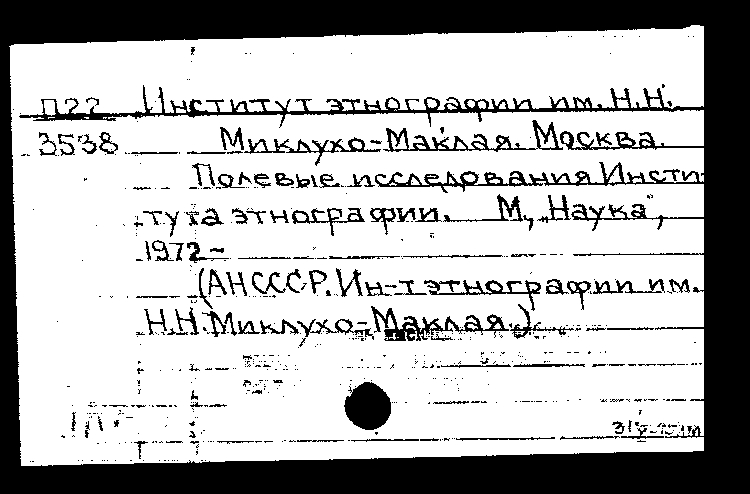 П22 Институт этнографии им. Н.Н.
3538 Миклухо-Маклая. Москва.
Полевые исследования Инсти-
тута этнографии. М., „Наука",
1972-
(АН СССР. Ин-т этнографии им.
Н.Н. Миклухо-Маклая.)